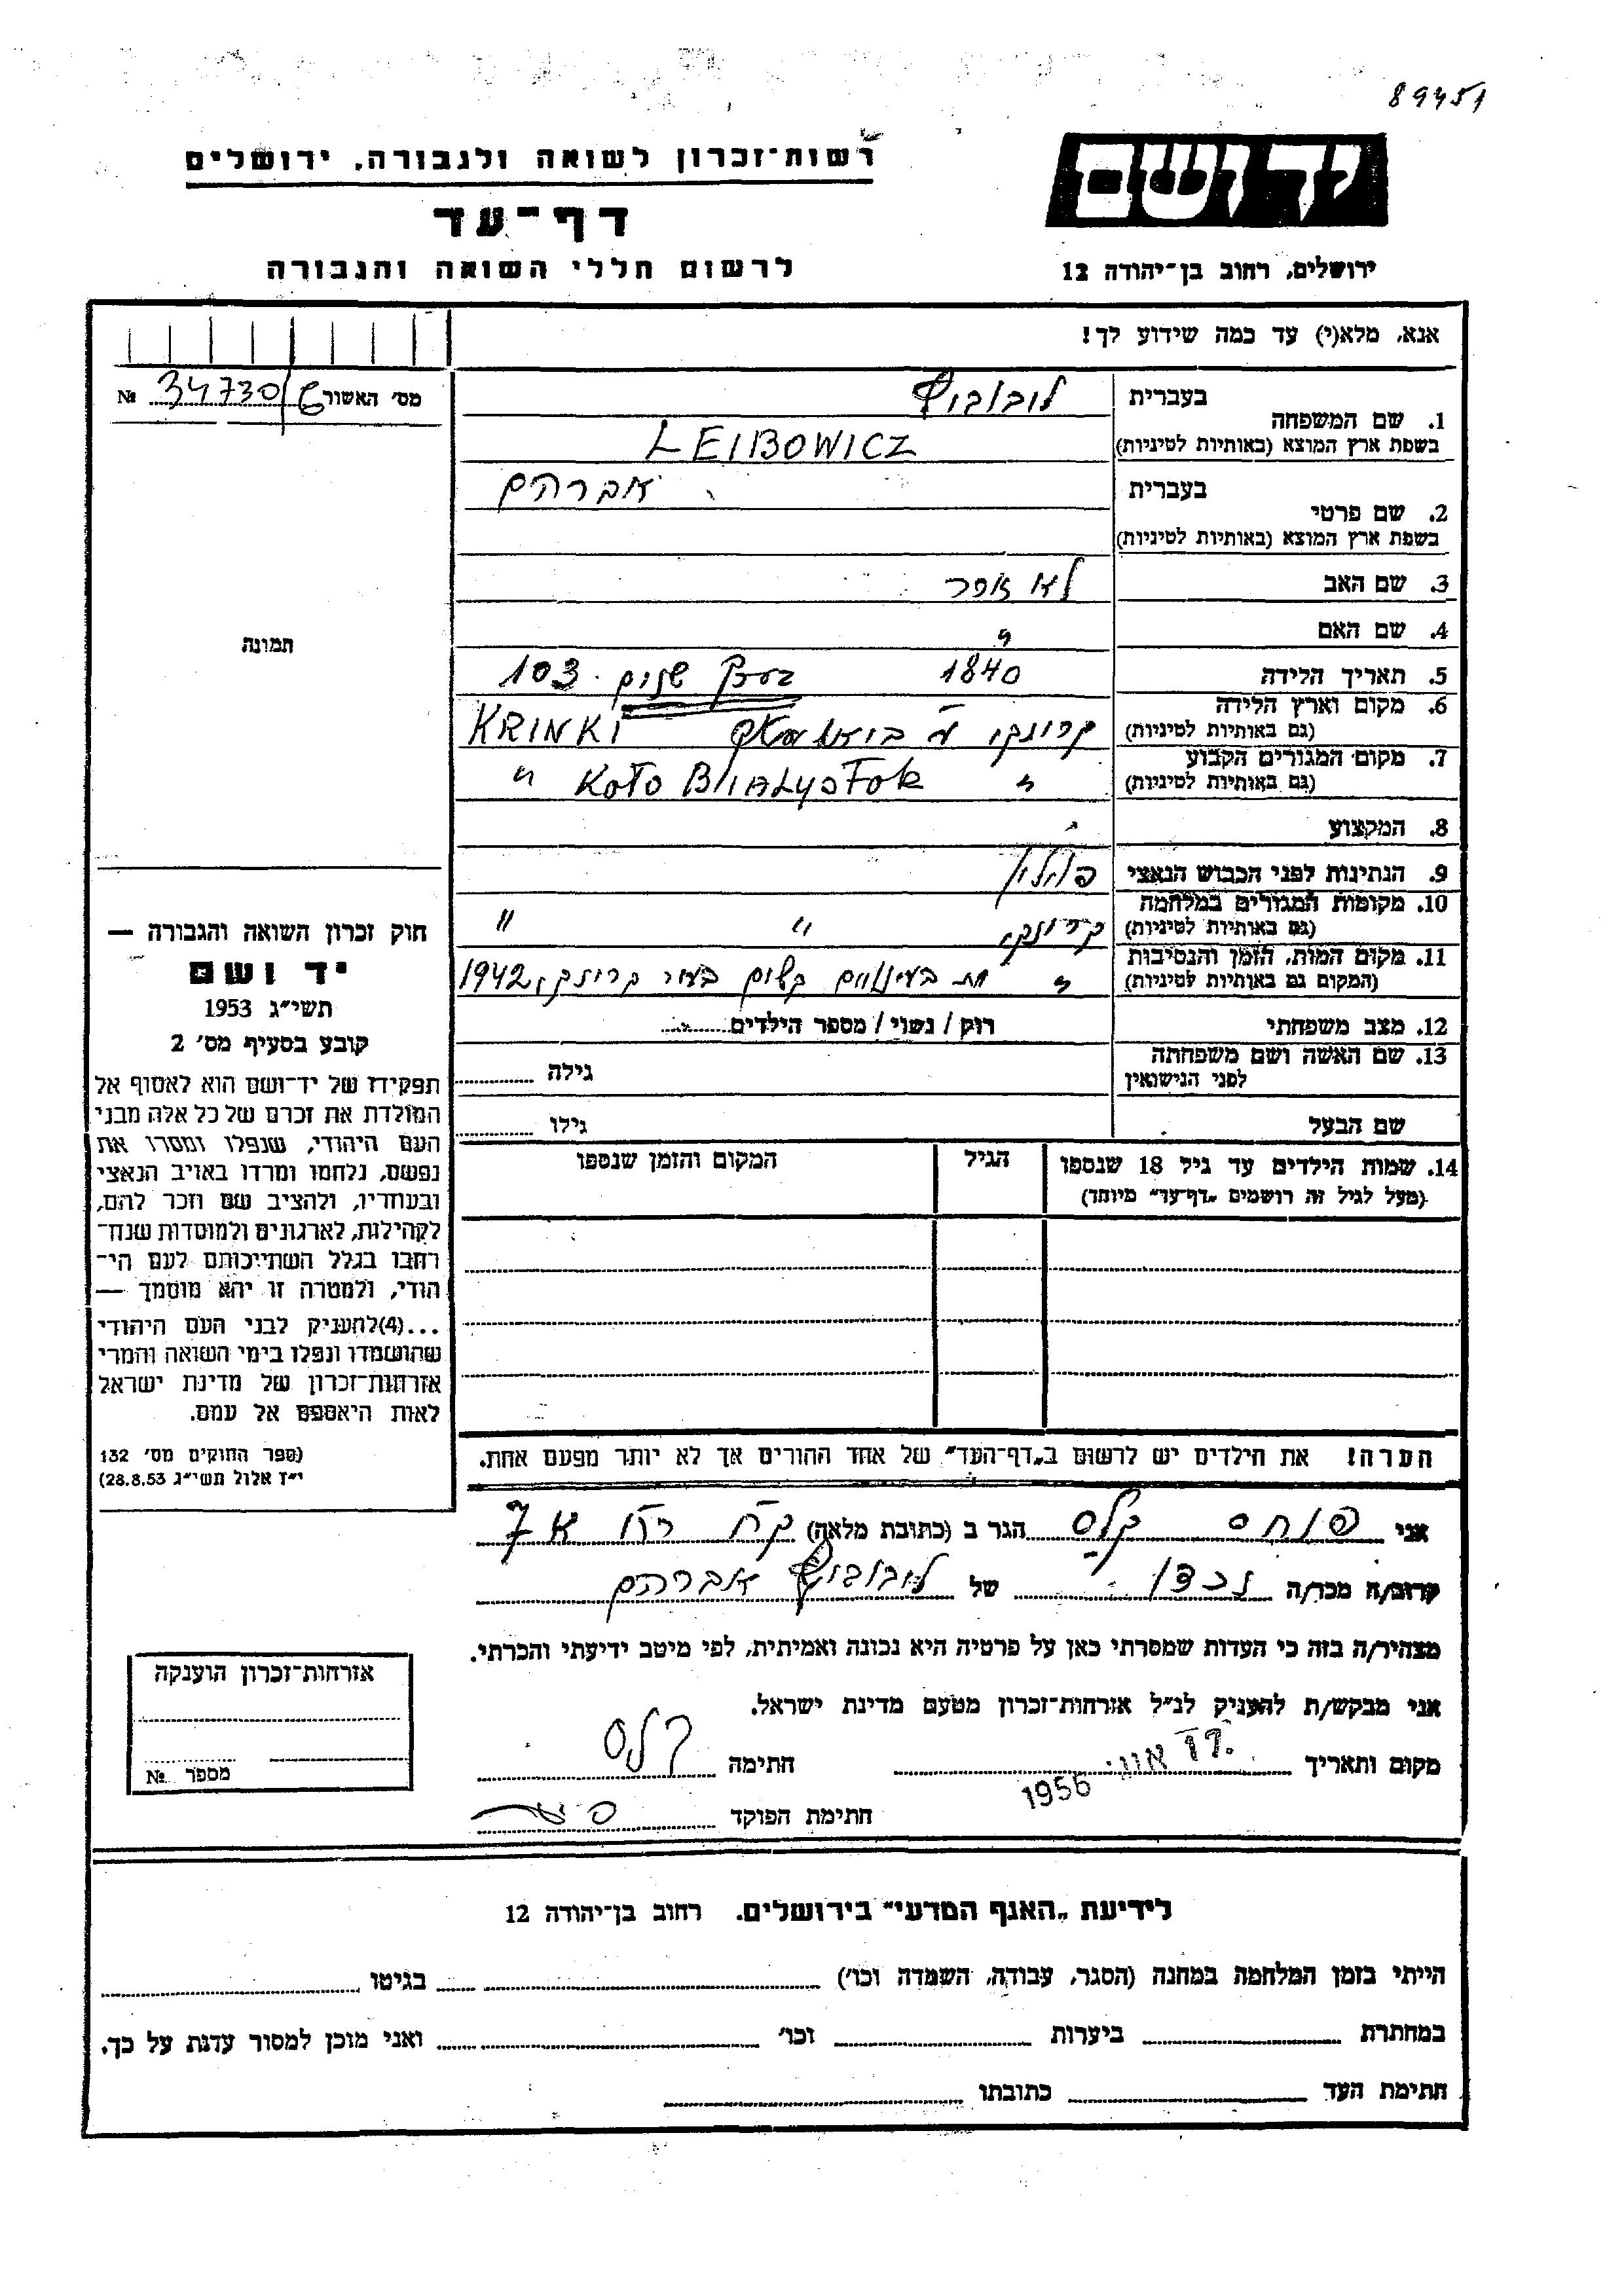 89451
רשות־זכרון לשואה ולגבורה, ירושלים
יד ושם
דף־עד
לרשום חללי השואה והגבורה
ירושלים, רחוב בן־יהודה 12
אנא, מלא(י) עד כמה שידוע לך!
מס׳ האשור 34730/ №
בעברית
1. שם המשפחה לובוביץ
בשפת ארץ המוצא (באותיות לטיניות) LEIBOWICZ
בעברית אברהם
2. שם פרטי
בשפת ארץ המוצא (באותיות לטיניות)
3. שם האב לא אפר
4. שם האם "
תמונה
5. תאריך הלידה 1840 103
6. מקום וארץ הלידה
(גם באותיות לטיניות) קרינקי KRINKI
7. מקום המגורים הקבוע
(גם באותיות לטיניות) " KOŁO BLIAŁYSTOK "
8. המקצוע
9. הנתינות לפני הכבוש הנאצי פולין
10. מקומות המגורים במלחמה
(גם באותיות לטיניות) קרינקי " "
11. מקום המות, הזמן והנסיבות
(המקום גם באותיות לטיניות) " מת קרינקי, 1942
12. מצב משפחתי רוק / נשוי / מספר הילדים
13. שם האשה ושם משפחתה
לפני הנישואין גילה
שם הבעל גילו
14. שמות הילדים עד גיל 18 שנספו הגיל המקום והזמן שנספו
(מעל לגיל זה רושמים „דף־עד״ מיוחד)
הערה! את הילדים יש לרשום ב„דף־העד״ של אחד ההורים אך לא יותר מפעם אחת.
חוק זכרון השואה והגבורה —
יד ושם
תשי״ג 1953
קובע בסעיף מס׳ 2
תפקידו של יד־ושם הוא לאסוף אל
המולדת את זכרם של כל אלה מבני
העם היהודי, שנפלו ומסרו את
נפשם, נלחמו ומרדו באויב הנאצי
ובעוזריו, ולהציב שם וזכר להם,
לקהילות, לארגונים ולמוסדות שנח־
רחבו בגלל השתייכותם לעם הי־
הודי, ולמטרה זו יהא מוסמך —
...(4)להעניק לבני העם היהודי
שהושמדו ונפלו בימי השואה והמרי
אזרחות־זכרון של מדינת ישראל
לאות היאספם אל עמם.
(ספר החוקים מס׳ 132
י״ז אלול תשי״ג 28.8.53)
אני פנחס קלס הגר ב (כתובת מלאה)
קרוב/ה מכר/ה נכדו של לובוביץ אברהם
מצהיר/ה בזה כי העדות שמסרתי כאן על פרטיה היא נכונה ואמיתית, לפי מיטב ידיעתי והכרתי.
אני מבקש/ת להעניק לנ״ל אזרחות־זכרון מטעם מדינת ישראל.
מקום ותאריך 1956 חתימה קלס
חתימת הפוקד
אזרחות־זכרון הוענקה
מספר №
לידיעת „האגף המדעי״ בירושלים. רחוב בן־יהודה 12
הייתי בזמן המלחמה במחנה (הסגר, עבודה, השמדה וכו׳) בגיטו
במחתרת ביערות וכו׳ ואני מוכן למסור עדות על כך.
חתימת העד כתובתו